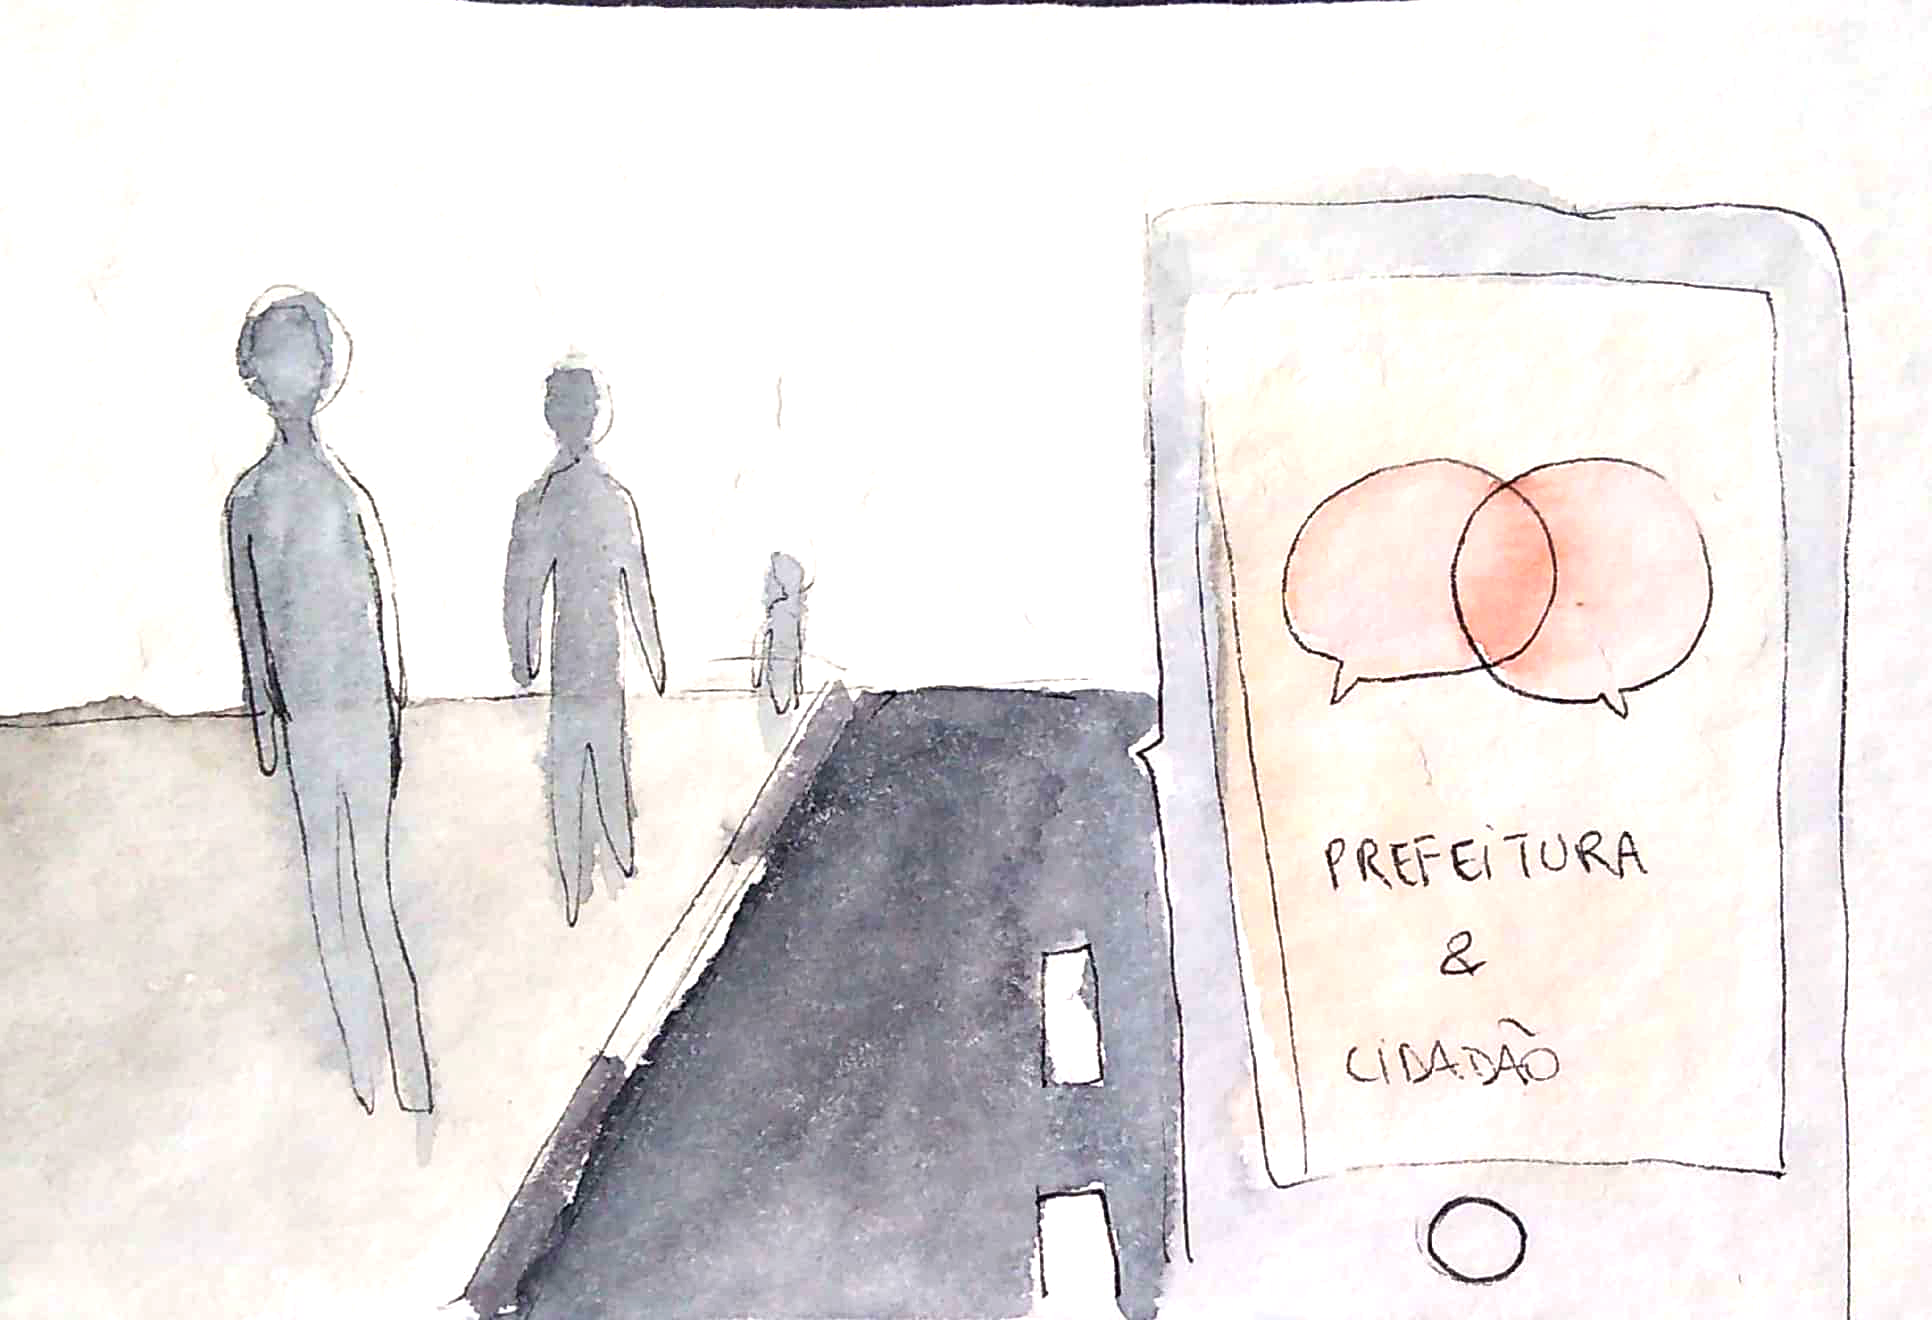 PREFEITURA
&
CIDADÃO